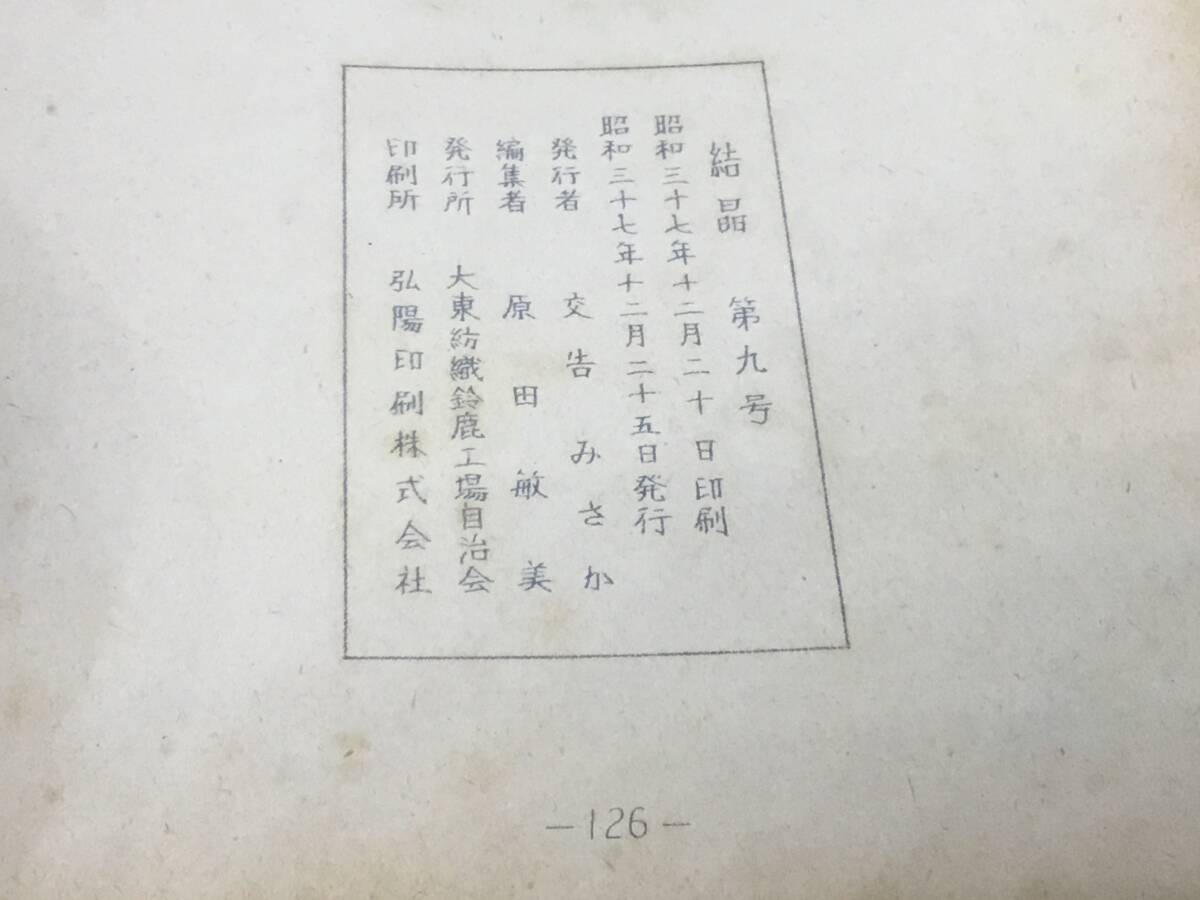 結晶 第九号
昭和三十七年十二月二十日印刷
昭和三十七年十二月二十五日発行
発行者 交告みさか
編集者 原田敏美
発行所 大東紡織鈴鹿工場自治会
印刷所 弘陽印刷株式会社
—126—